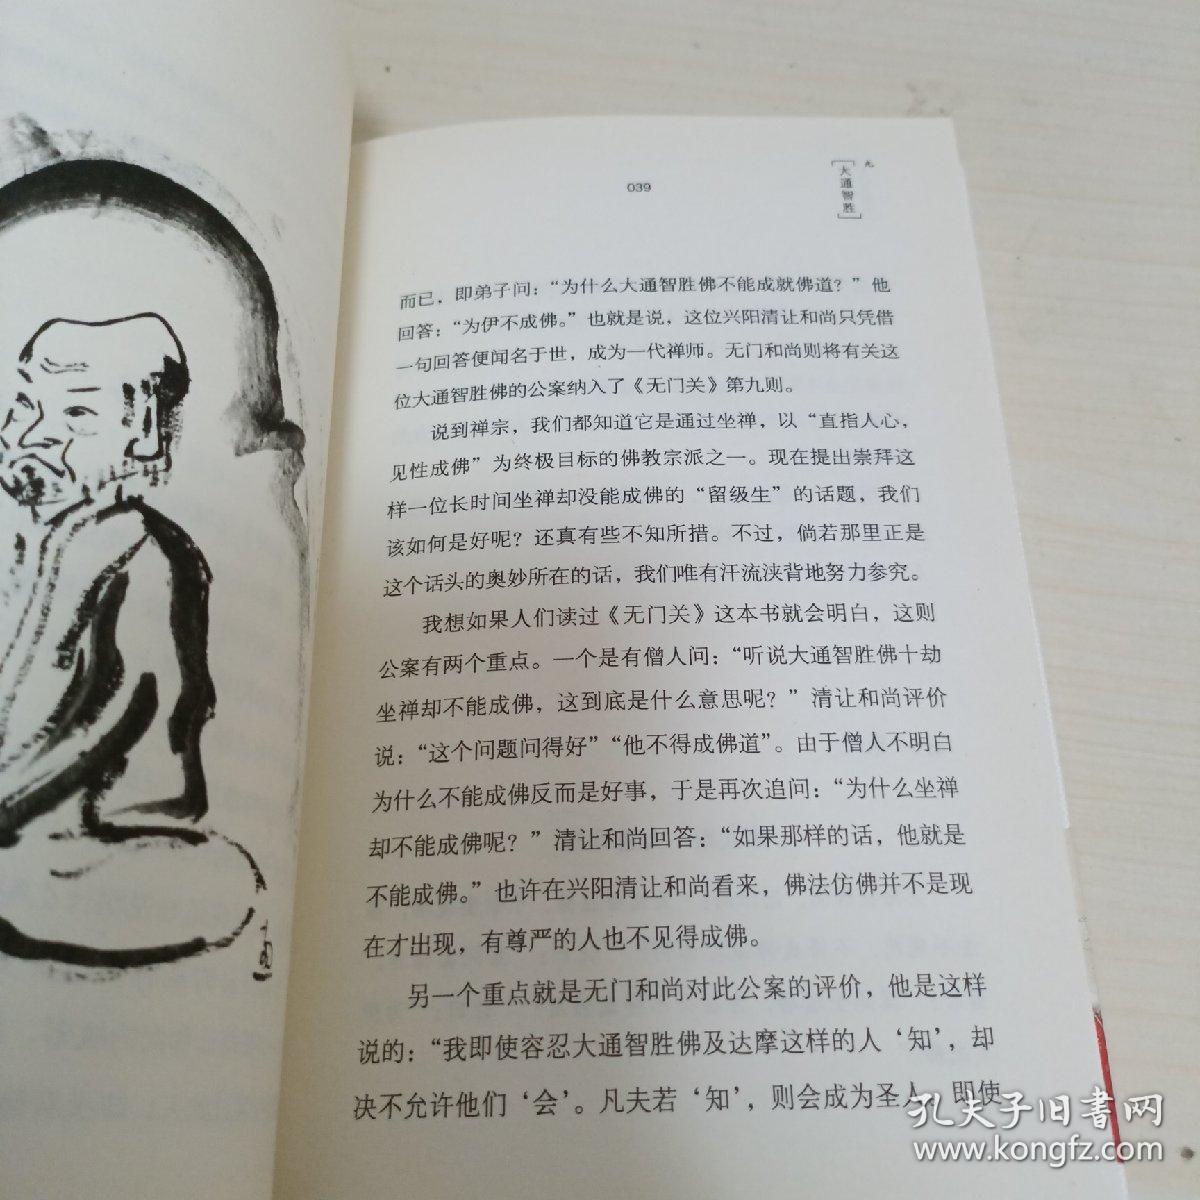 039
九
大通智胜
而已，即弟子问：“为什么大通智胜佛不能成就佛道？”他
回答：“为伊不成佛。”也就是说，这位兴阳清让和尚只凭借
一句回答便闻名于世，成为一代禅师。无门和尚则将有关这
位大通智胜佛的公案纳入了《无门关》第九则。
说到禅宗，我们都知道它是通过坐禅，以“直指人心，
见性成佛”为终极目标的佛教宗派之一。现在提出崇拜这
样一位长时间坐禅却没能成佛的“留级生”的话题，我们
该如何是好呢？还真有些不知所措。不过，倘若那里正是
这个话头的奥妙所在的话，我们唯有汗流浃背地努力参究。
我想如果人们读过《无门关》这本书就会明白，这则
公案有两个重点。一个是有僧人问：“听说大通智胜佛十劫
坐禅却不能成佛，这到底是什么意思呢？”清让和尚评价
说：“这个问题问得好”“他不得成佛道”。由于僧人不明白
为什么不能成佛反而是好事，于是再次追问：“为什么坐禅
却不能成佛呢？”清让和尚回答：“如果那样的话，他就是
不能成佛。”也许在兴阳清让和尚看来，佛法仿佛并不是现
在才出现，有尊严的人也不见得成佛。
另一个重点就是无门和尚对此公案的评价，他是这样
说的：“我即使容忍大通智胜佛及达摩这样的人‘知’，却
决不允许他们‘会’。凡夫若‘知’，则会成为圣人，即使
孔夫子旧书网
www.kongfz.com